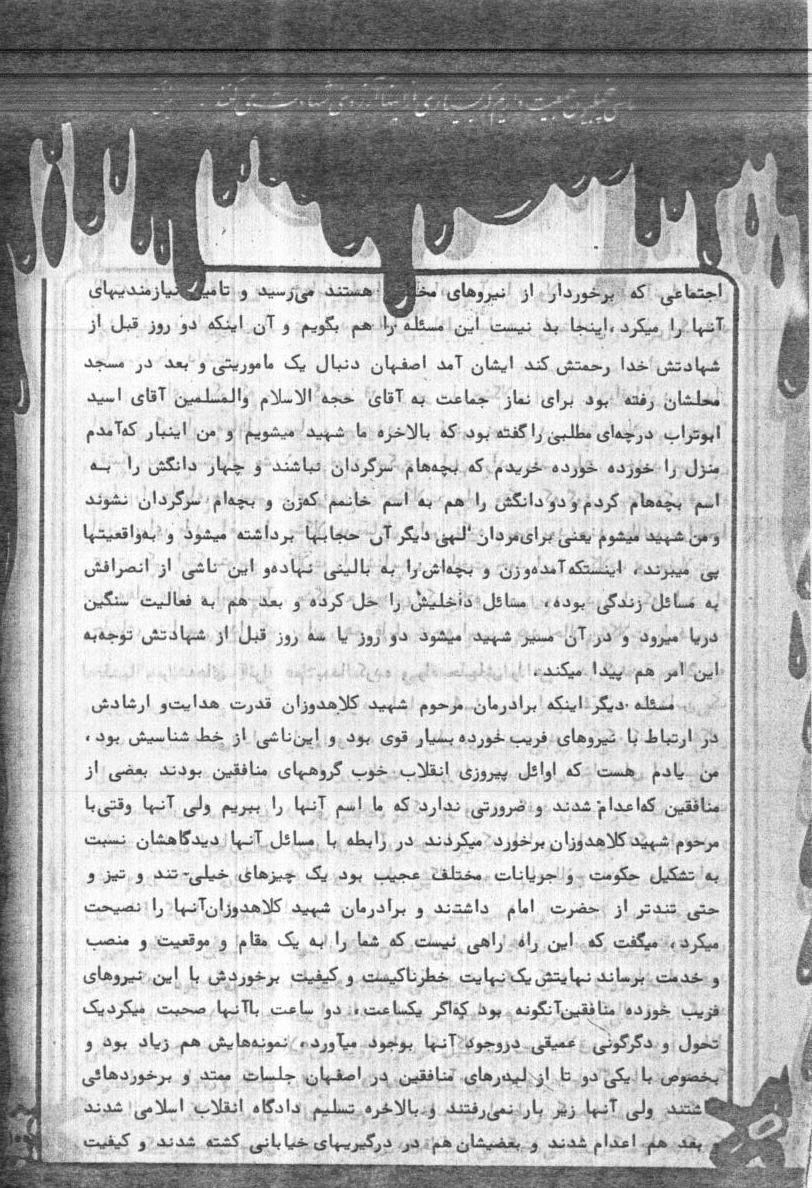 اجتماعی که برخوردار از نیروهای هستند می‌رسید و تامین نیازمندیهای
آنها را میکرد، اینجا بد نیست این مسئله را هم بگویم و آن اینکه دو روز قبل از
شهادتش خدا رحمتش کند ایشان آمد اصفهان دنبال یک ماموریتی و بعد در مسجد
محلشان رفته بود برای نماز جماعت به آقای حجه الاسلام والمسلمین آقای اسید
ابوتراب درچه‌ای مطلبی را گفته بود که بالاخره ما شهید میشویم و من اینبار که‌آمدم
منزل را خورده خورده خریدم که بچه‌هام سرگردان نباشند و چهار دانگش را بـه
اسم بچه‌هام کردم و دو دانگش را هم به اسم خانمم که‌زن و بچه‌ام سرگردان نشوند
و من شهید میشوم یعنی برای‌مردان الهی دیگر آن حجابها برداشته میشود و به‌واقعیتها
پی میبرند، اینستکه‌آمده‌وزن و بچه‌اش‌را به بالینی نهاده‌و این ناشی از انصرافش
به مسائل زندگی بوده، مسائل داخلیش را حل کرده و بعد هم به فعالیت سنگین
دریا میرود و در آن مسیر شهید میشود دو روز یا سه روز قبل از شهادتش توجه‌به
این امر هم پیدا میکند.
مسئله دیگر اینکه برادرمان مرحوم شهید کلاهدوزان قدرت هدایت‌و ارشادش
در ارتباط با نیروهای فریب‌خورده بسیار قوی بود و این‌ناشی از خط شناسیش بود،
من یادم هست که اوائل پیروزی انقلاب خوب گروههای منافقین بودند بعضی از
منافقین که‌اعدام شدند و ضرورتی ندارد که ما اسم آنها را ببریم ولی آنها وقتی‌با
مرحوم شهید کلاهدوزان برخورد میکردند در رابطه با مسائل آنها دیدگاهشان نسبت
به تشکیل حکومت و جریانات مختلف عجیب بود یک چیزهای خیلی تند و تیز و
حتی تندتر از حضرت امام داشتند و برادرمان شهید کلاهدوزان‌آنها را نصیحت
میکرد، میگفت که این راه راهی نیست که شما را به یک مقام و موقعیت و منصب
و خدمت برساند نهایتش یک نهایت خطرناکیست و کیفیت برخوردش با این نیروهای
فریب خورده منافقین‌آنگونه بود که‌اگر یکساعت، دو ساعت باآنها صحبت میکردیک
تحول و دگرگونی عمیقی دروجود آنها بوجود میآورد، نمونه‌هایش هم زیاد بود و
بخصوص با یکی دو تا از لیدرهای منافقین در اصفهان جلسات ممتد و برخوردهائی
شتند ولی آنها زیر بار نمی‌رفتند و بالاخره تسلیم دادگاه انقلاب اسلامی شدند
بعد هم اعدام شدند و بعضیشان هم در درگیریهای خیابانی کشته شدند و کیفیت